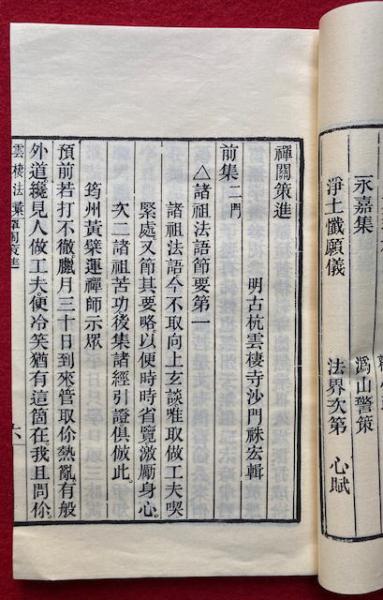 永嘉集
溈山警策
淨土懺願儀
法界次第
心賦
禪關策進
明古杭雲棲寺沙門袾宏輯
前集二門
△諸祖法語節要第一
諸祖法語今不取向上玄談唯取做工夫喫
緊處又節其要略以便時時省覽激勵身心
次二諸祖苦功後集諸經引證俱倣此
筠州黃檗運禪師示眾
預前若打不徹臘月三十日到來管取你熱亂有般
外道纔見人做工夫便冷笑猶有這箇在我且問你
雲棲法彙 禪關策進
六